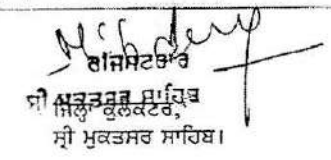 ਰਜਿਸਟਰਾਰ
ਸ੍ਰੀ ਮੁਕਤਸਰ ਸਾਹਿਬ
ਜਿਲ੍ਹਾ ਕੁਲੈਕਟਰ,
ਸ੍ਰੀ ਮੁਕਤਸਰ ਸਾਹਿਬ।